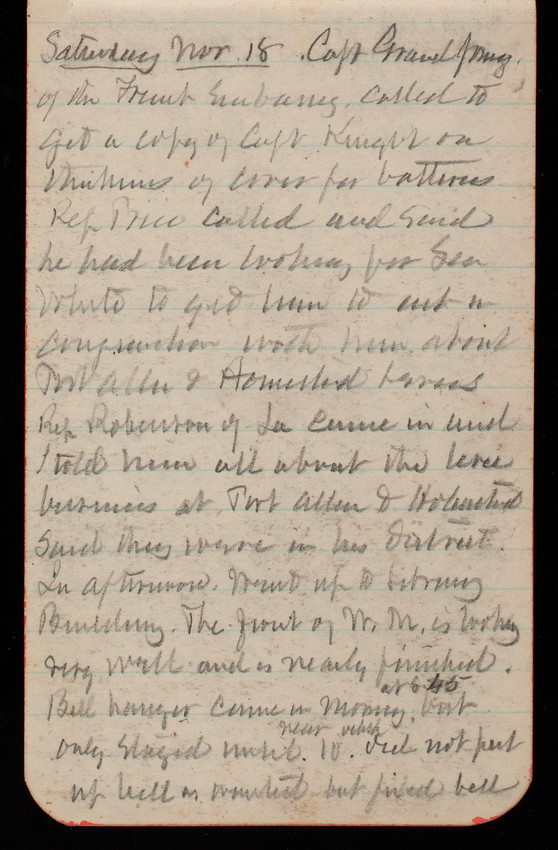 Saturday Nov. 18. Capt Grandprey,
of the French Embassy, called to
get a copy of Capt Knight on
thickness of cover for batteries
Rep Price called and said
he had been looking for Sen
White to get him to cut a
with him about
Port Allen & Homestead levees
Rep Robertson of La came in and
I told him all about the levee
business at Port Allen & Homestead
Said they were in his district.
In afternoon. Went up to Library
Building. The front of N. W. is looking
very well and is nearly finished.
at 8 45
Bell hanger came in morning, but
near
only stayed until 10. did not put
up bell as wanted but fixed bell